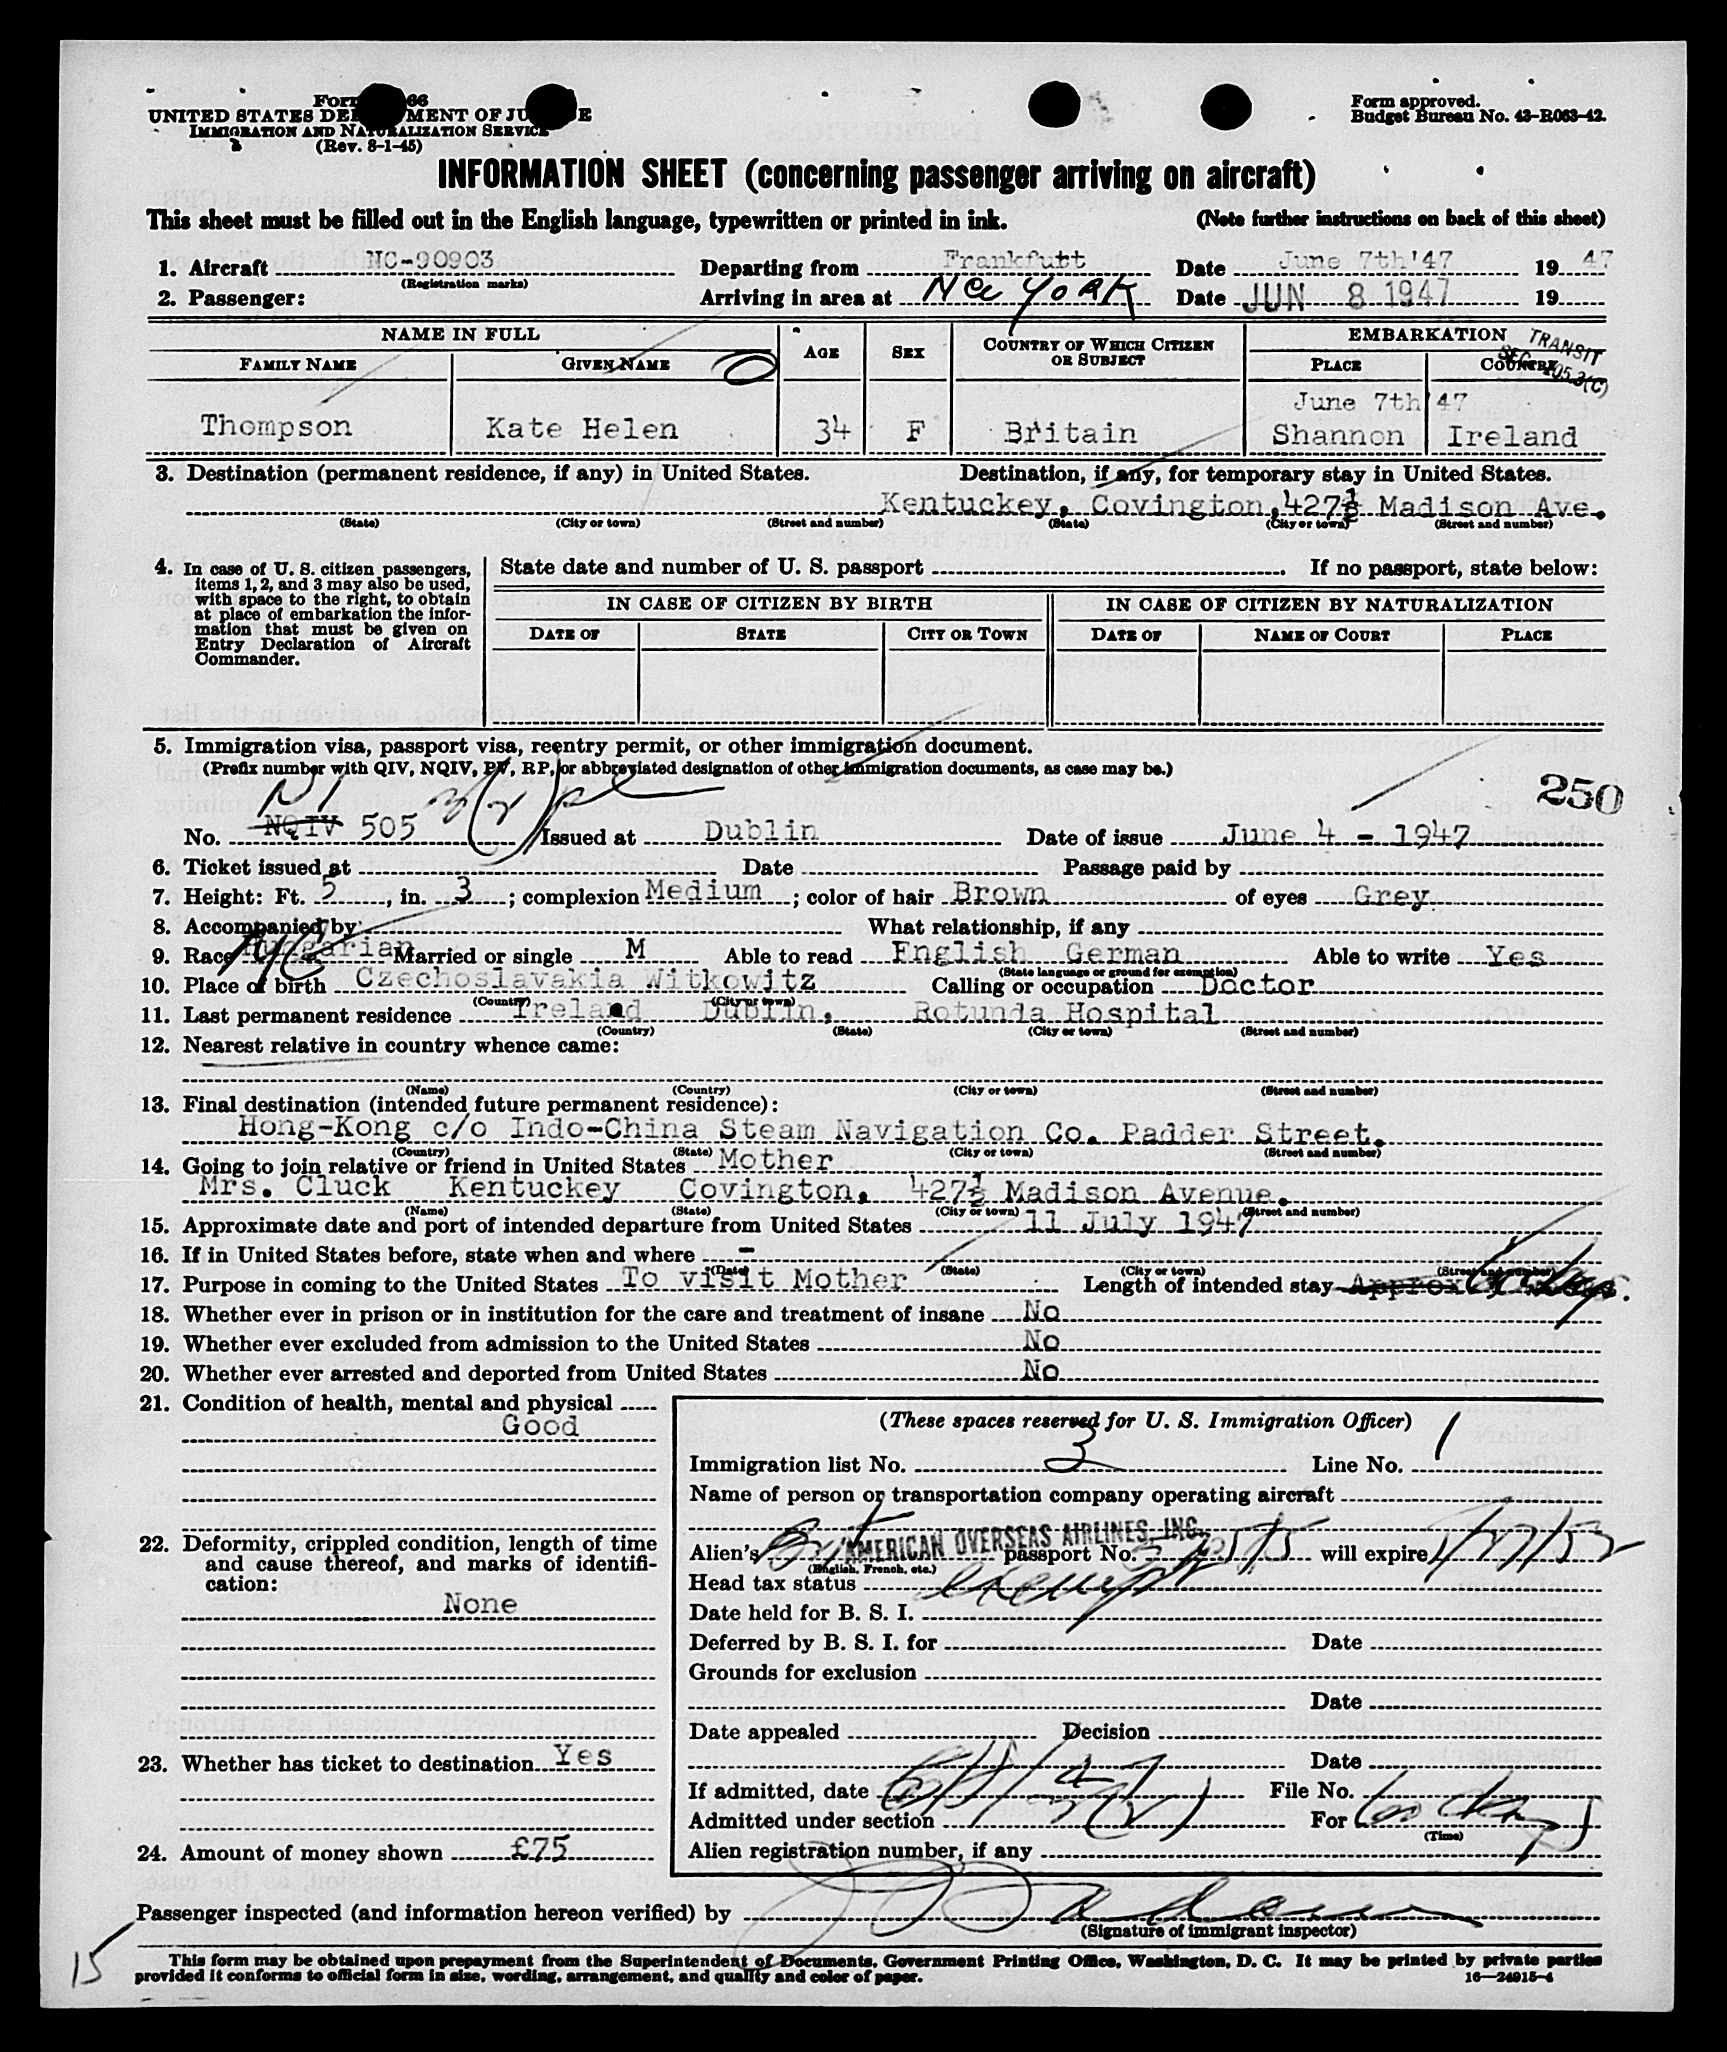 Form 66
UNITED STATES DEPARTMENT OF JUSTICE
IMMIGRATION AND NATURALIZATION SERVICE
(Rev. 8-1-45)
Form approved.
Budget Bureau No. 43-R063-42.
INFORMATION SHEET (concerning passenger arriving on aircraft)
This sheet must be filled out in the English language, typewritten or printed in ink. (Note further instructions on back of this sheet)
1. Aircraft NC-90903 Departing from Frankfutt Date June 7th'47 19 47
(Registration marks)
2. Passenger: Arriving in area at New YORK Date JUN 8 1947 19
NAME IN FULL AGE SEX COUNTRY OF WHICH CITIZEN OR SUBJECT EMBARKATION
TRANSIT
FAMILY NAME GIVEN NAME PLACE COUNTRY
June 7th'47
Thompson Kate Helen 34 F Britain Shannon Ireland
3. Destination (permanent residence, if any) in United States. Destination, if any, for temporary stay in United States.
Kentuckey, Covington, 427½ Madison Ave.
(State) (City or town) (Street and number) (State) (City or town) (Street and number)
4. In case of U. S. citizen passengers, items 1, 2, and 3 may also be used, with space to the right, to obtain at place of embarkation the information that must be given on Entry Declaration of Aircraft Commander.
State date and number of U. S. passport If no passport, state below:
IN CASE OF CITIZEN BY BIRTH IN CASE OF CITIZEN BY NATURALIZATION
DATE OF STATE CITY OR TOWN DATE OF NAME OF COURT PLACE
5. Immigration visa, passport visa, reentry permit, or other immigration document.
(Prefix number with QIV, NQIV, PV, RP, or abbreviated designation of other immigration documents, as case may be.)
250
No. NQIV 505 Issued at Dublin Date of issue June 4 - 1947
6. Ticket issued at Date Passage paid by
7. Height: Ft. 5, in. 3; complexion Medium; color of hair Brown of eyes Grey
8. Accompanied by What relationship, if any
9. Race Hungarian Married or single M Able to read English German Able to write Yes
(State language or ground for exemption)
10. Place of birth Czechoslavakia Witkowitz Calling or occupation Doctor
(Country) (City or town)
11. Last permanent residence Ireland Dublin, Rotunda Hospital
(Country) (State) (City or town) (Street and number)
12. Nearest relative in country whence came:
(Name) (Country) (City or town) (Street and number)
13. Final destination (intended future permanent residence):
Hong-Kong c/o Indo-China Steam Navigation Co. Padder Street.
(Country) (State) (City or town) (Street and number)
14. Going to join relative or friend in United States Mother
Mrs. Cluck Kentuckey Covington, 427½ Madison Avenue.
(Name) (State) (City or town) (Street and number)
15. Approximate date and port of intended departure from United States 11 July 1947
16. If in United States before, state when and where -
(Date) (State) (City or town) (Street and number)
17. Purpose in coming to the United States To visit Mother Length of intended stay Approx
18. Whether ever in prison or in institution for the care and treatment of insane No
19. Whether ever excluded from admission to the United States No
20. Whether ever arrested and deported from United States No
21. Condition of health, mental and physical
Good
22. Deformity, crippled condition, length of time and cause thereof, and marks of identification:
None
23. Whether has ticket to destination Yes
24. Amount of money shown £75
(These spaces reserved for U. S. Immigration Officer)
Immigration list No. 3 Line No. 1
Name of person or transportation company operating aircraft
AMERICAN OVERSEAS AIRLINES, INC.
Alien's Brit passport No. will expire 1/27/52
(English, French, etc.)
Head tax status exempt
Date held for B. S. I.
Deferred by B. S. I. for Date
Grounds for exclusion
Date
Date appealed Decision
Date
If admitted, date 6/8/47 File No.
Admitted under section 3(2) For 60 days
(Time)
Alien registration number, if any
Passenger inspected (and information hereon verified) by
(Signature of immigrant inspector)
15
This form may be obtained upon prepayment from the Superintendent of Documents, Government Printing Office, Washington, D. C. It may be printed by private parties
provided it conforms to official form in size, wording, arrangement, and quality and color of paper. 16—24915-4